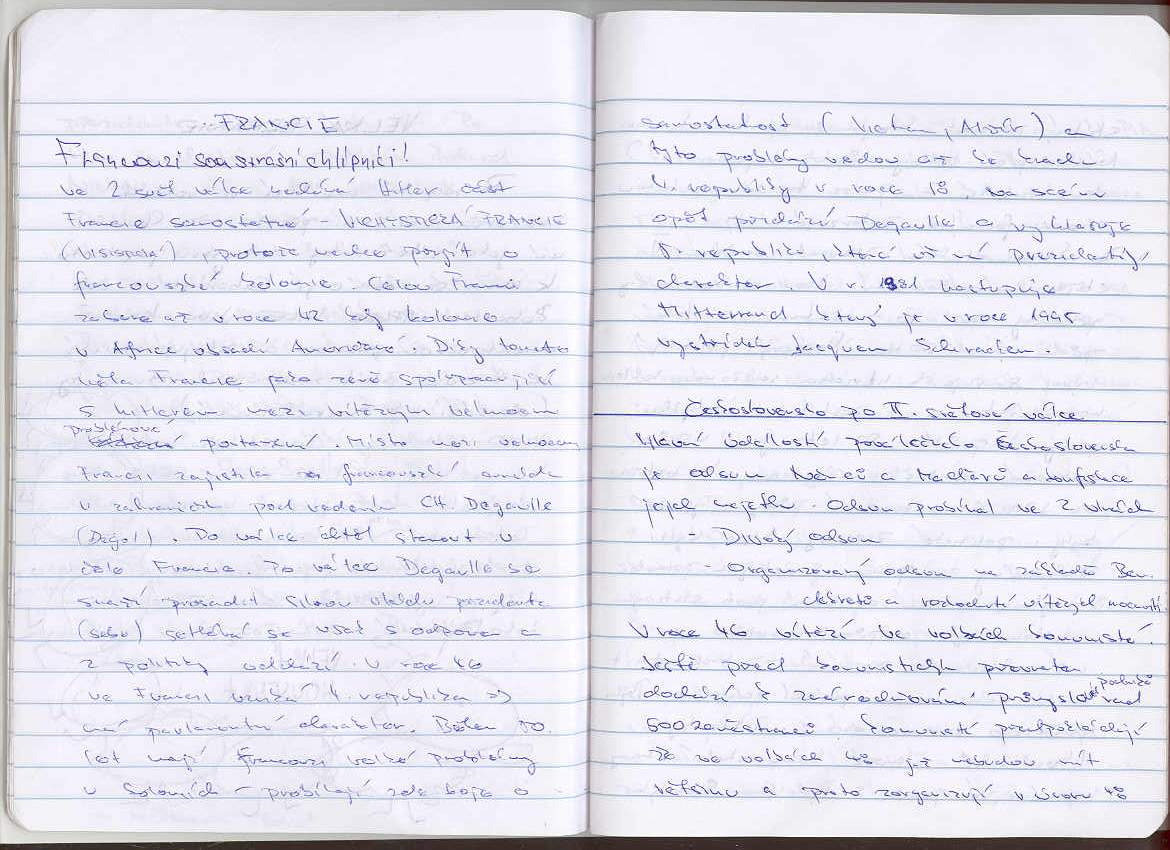 FRANCIE
Francouzi sou strašní chlípníci!
ve 2 svět. válce nechává Hitler část
Francie samostatné - VICHISTICKÁ FRANCIE
(višistská), protože nechce přijít o
francouzské kolonie. Celou Francii
zabere až v roce 42 kdy kolonie
v Africe obsadí Američané. Díky tomuto
měla Francie jako země spolupracující
s hitlerem mezi vítěznými velmocemi
problémové
postavení. Místo mezi velmocemi
Francii zajistila francouzská armáda
v zahraničí pod vedením CH. Degaulle
(Degól). Po válce chtěl stanout v
čele Francie. Po válce Degaulle se
snaží prosadit silnou vládu prezidenta
(sebe) setkává se však s odporem a
z politiky odchází. V roce 46
ve Francii vzniká 4. republika =>
má parlamentní charakter. Během 50.
let mají Francouzi velké problémy
v koloniích - probíhají zde boje o
samostatnost (Vietnam, Alžír) a
tyto problémy vedou až ke krachu
4. republiky v roce 58. Na scénu
opět přichází Degaulle a vyhlašuje
5. republiku, která už má prezidentský
charakter. V r. 1981 nastupuje
Mitterrand který je v roce 1995
vystřídán Jacquem Schiracem.
Československo po II. světové válce
Hlavní událostí poválečného Československa
je odsun Němců a Maďarů a konfiskace
jejich majetku. Odsun probíhal ve 2 vlnách
- Divoký odsun
- Organizovaný odsun na základě Ben.
dekretů a rozhodnutí vítězných mocností.
V roce 46 vítězí ve volbách komunisté.
Ještě před komunistickým převratem
dochází k znárodňování průmyslových podniků nad
500 zaměstnanců. Komunisté předpokládají
že ve volbách 48 již nebudou mít
většinu a proto zorganizují v únoru 48